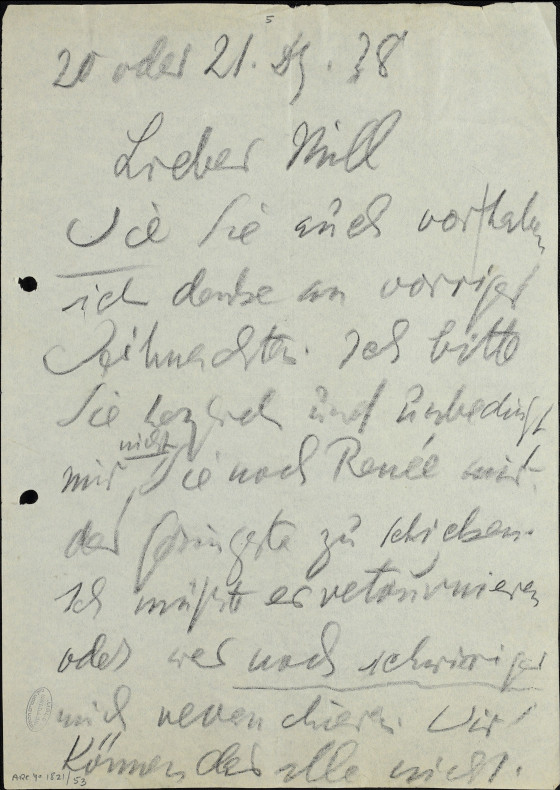 5
20 oder 21. Dz. 38
Lieber Will
Wie Sie auch vorhaben
ich denke an vorriges
Weihnachten. Ich bitte
Sie herzlich und unbedingt
nicht
mir, Sie noch Renée
das Geringste zu schicken.
Ich müßte es retournieren
oder was noch schwieriger
mich revanchieren. Wir
können das alle nicht.
ARC 4o 1821/53